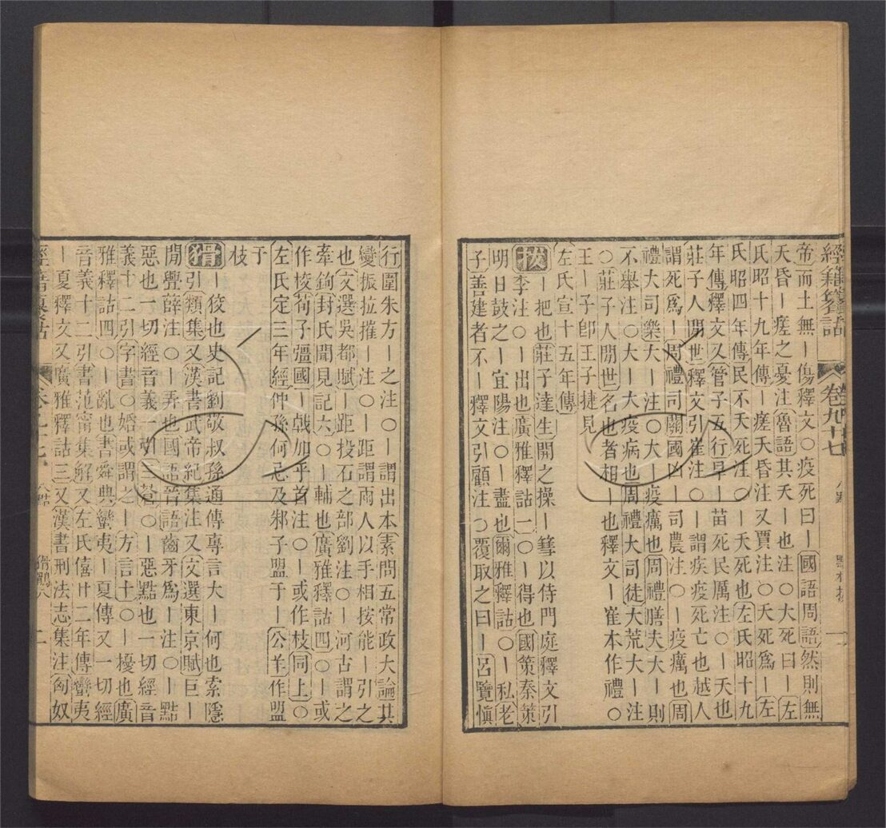 經籍籑詁 卷九十七 八黠
帝而土無ー傷釋文○疫死曰ー國語周語然則無
天昏ー瘥之憂注魯語其夭ー也注○大死曰ー左
氏昭十九年傳ー瘥夭昏注又賈注○夭死爲ー左
氏昭四年傳民不夭死注○ー夭死也左氏昭十九
年傳釋文又管子五行旱ー苗死民厲注○ー夭也
莊子人閒世釋文引崔注○ー謂疾疫死亡也越人
謂死爲ー周禮司關國凶ー司農注○ー疫癘也周
禮大司樂大ー注○大ー疫癘也周禮膳夫大ー則
不舉注○大ー大疫病也周禮大司徒大荒大ー注
○莊子人閒世名也者相ー也釋文ー崔本作禮○
王ー子卽王子捷見
左氏宣十五年傳
拔 ー把也莊子達生開之操ー篲以侍門庭釋文引
李注○ー出也廣雅釋詁一○ー得也國策秦策
明日鼓之ー宜陽注○ー盡也爾雅釋詁○ー私老
子善建者不ー釋文引顧注○覆取之曰ー呂覽愼
行圍朱方ー之注○ー謂出本素問五常政大論其
變振拉摧ー注○ー距謂兩人以手相按能ー引之
也文選吳都賦ー距投石之部劉注○ー河古謂之
牽鉤封氏聞見記六○ー輔也廣雅釋詁四○ー或
作 荀子彊國ー戟加乎首注○ー或作枝同上○
左氏定三年經仲孫何忌及邾子盟于ー公羊作盟
于
枝
猾 ー後也史記劉敬叔孫通傳專言大ー何也索隱
引類集又漢書武帝紀集注又文選東京賦巨ー
閒舋薛注○ー弄也國語晉語齒牙爲ー注○ー黠
惡也一切經音義一引三蒼○ー惡黠也一切經音
義十二引字書○婚或謂之ー方言十○ー擾也廣
雅釋詁四○ー亂也書舜典蠻夷ー夏傳又一切經
音義十二引書范甯集解又左氏僖廿二年傳蠻夷
ー夏釋文又廣雅釋詁三又漢書刑法志集注匈奴
經籍籑詁 卷九十七 八黠 二